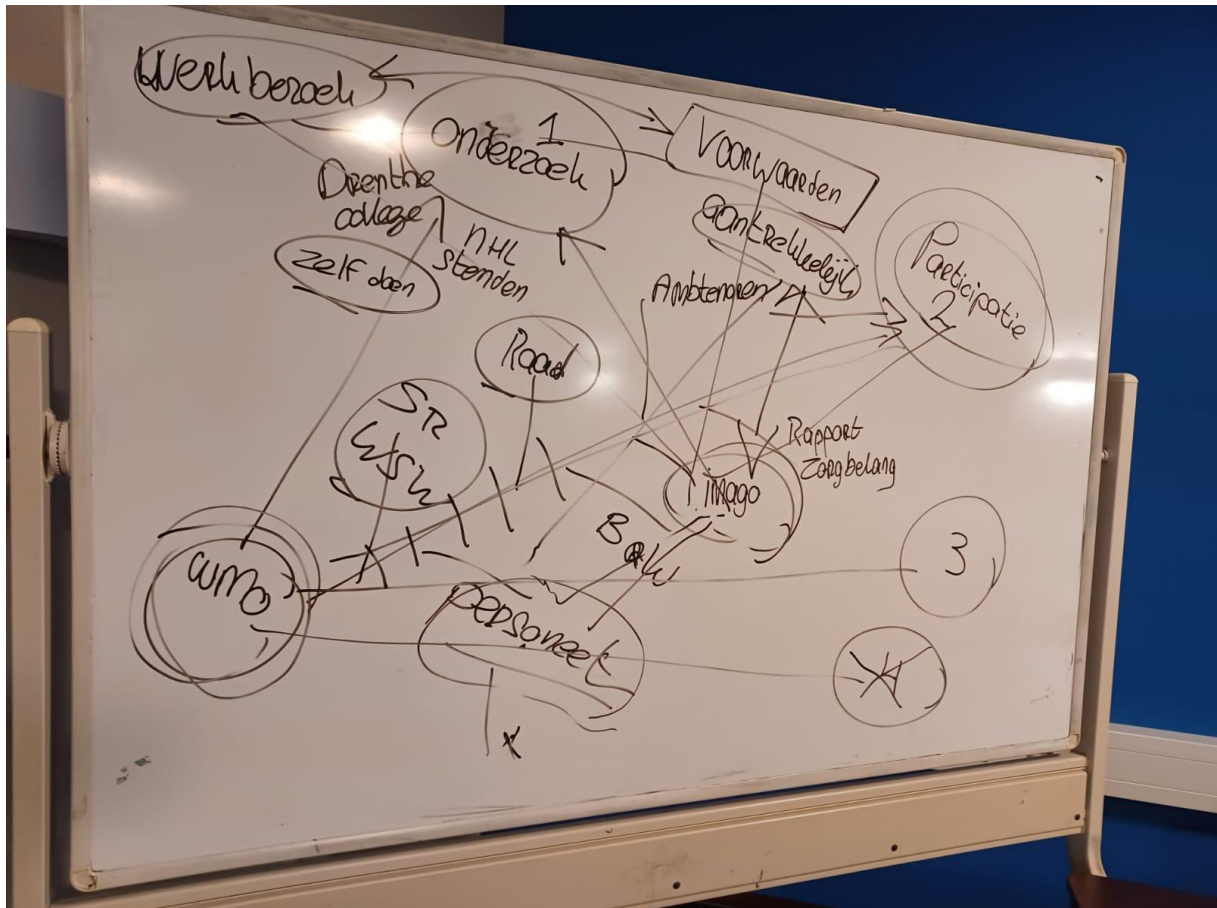 Werkbezoek
1
Onderzoek
Voorwaarden
Drenthe
college
NHL
stenden
zelf doen
aantrekkelijk
Participatie
2
Ambtenaren
Raad
SR
WSW
Rapport
Zorgbelang
imago
B&W
WMO
personeel
3
x